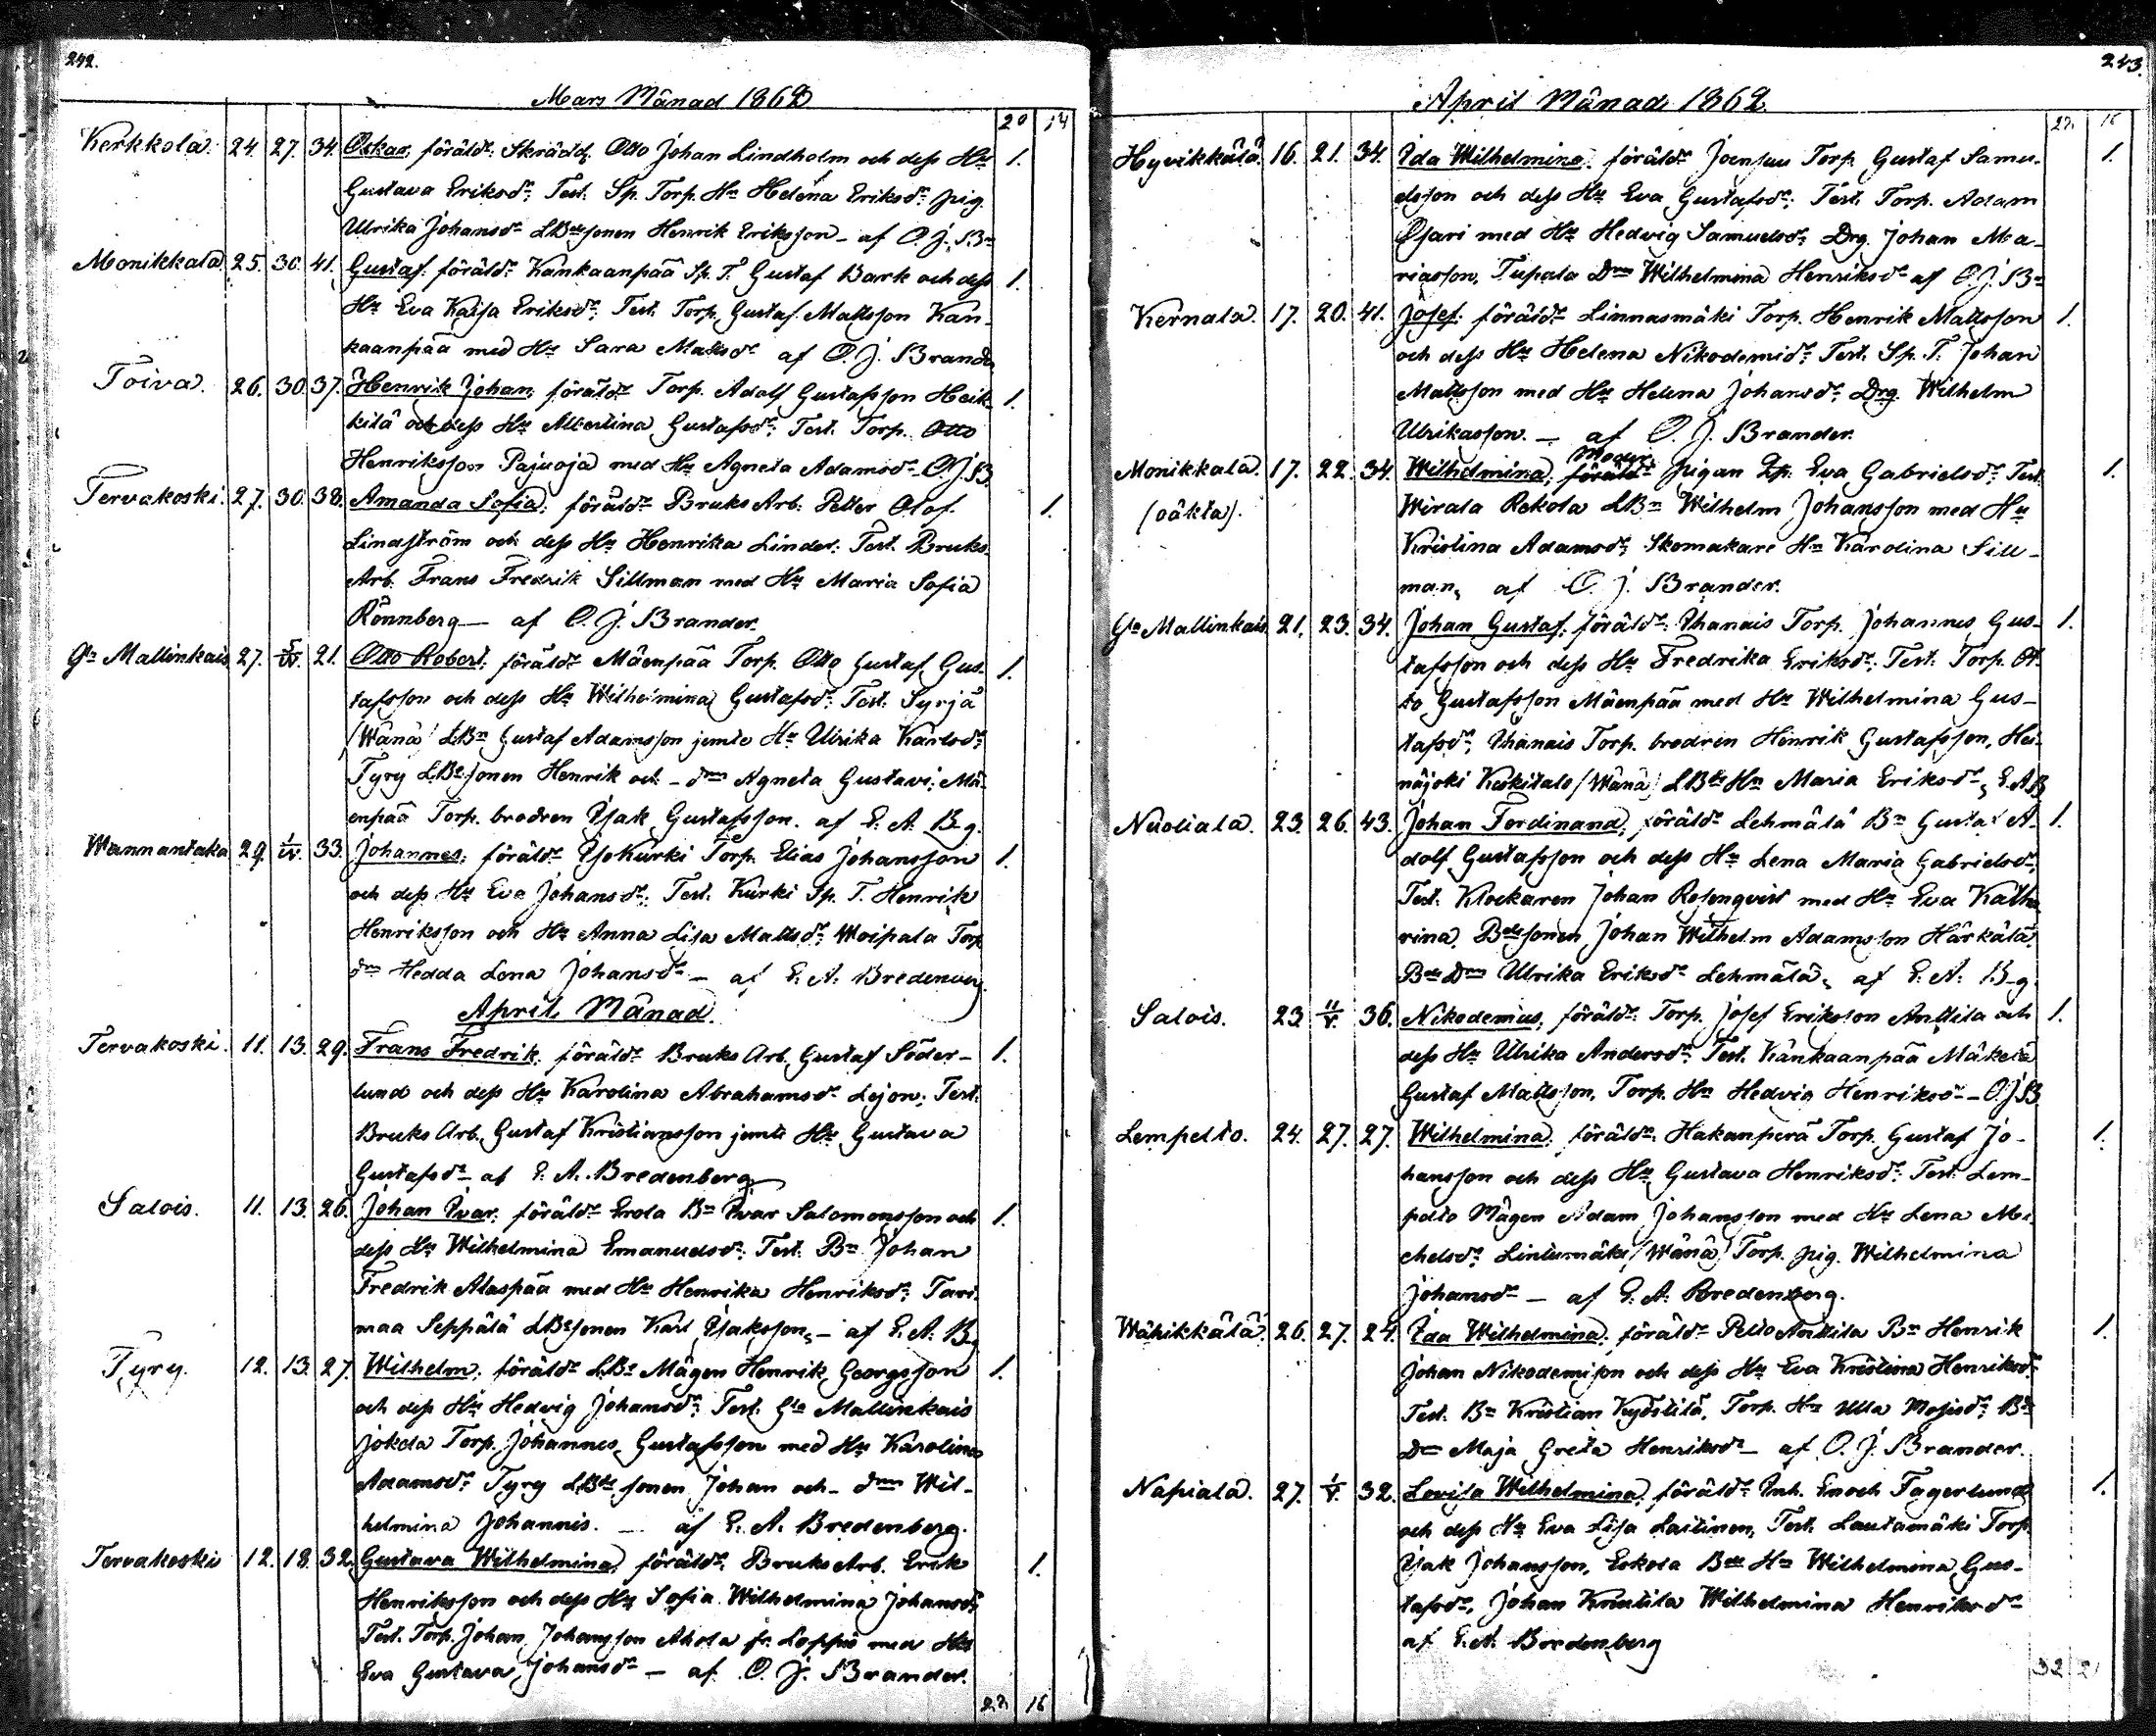 242.
Mars Månad 1862
20 14
Kerkkola. 24. 27. 34. Oskar, föräldr: Skrädd. Otto Johan Lindholm och dess Hu 1.
Gustava Eriksdr; Test. Sp. Torp. Hu Helena Eriksdr pig.
Ulrika Johansdr LBdesonen Henrik Eriksson – af O. J. Br
Monikkala 25. 30. 41. Gustaf. föräldr Kankaanpää Sp. T. Gustaf Bark och dess 1.
Hu Eva Kaisa Eriksdr; Test. Torp. Gustaf Mattsson Kan-
kaanpää med Hu Sara Mattsdr af O. J. Brander
Toiva. 26. 30. 37. Henrik Johan, föräldr Torp. Adolf Gustafsson Heik- 1.
kilä och dess Hu Albertina Gustafsdr; Test. Torp. Otto
Henriksson Pajuoja med Hu Agneta Adamsdr O.J.B.
Tervakoski. 27. 30. 38. Amanda Sofia; föräldr Bruks Arb: Petter Olof 1.
Lindström och dess Hu Henrika Linder: Test. Bruks
Arb. Frans Fredrik Sillman med Hu Maria Sofia
Rönnberg – af O. J. Brander.
Gla Mallinkais 27. 5/IV. 21. Otto Robert. föräldr Mäenpää Torp. Otto Gustaf Gus- 1.
tafsson och dess Hu Wilhelmina Gustafsdr: Test. Syrjä
(Wånå) LBn Gustaf Adamsson jemte Hu Ulrika Karlsdr;
Tyry LBdesonen Henrik och – drn Agneta Gustavi; Mä-
enpää Torp. brodren Isak Gustafsson. af E. A. B-g.
Wannantaka 29. 1/IV. 33. Johannes; föräldr IsoKurki Torp. Elias Johansson 1.
och dess Hu Eva Johansdr: Test. Kurki Sp. T. Henrik
Henriksson och Hu Anna Lisa Mattsdr; Woipala Torp
drn Hedda Lena Johansdr – af E. A. Bredenberg.
April Månad.
Tervakoski. 11. 13. 29. Frans Fredrik. föräldr Bruks Arb. Gustaf Söder- 1.
lund och dess Hu Karolina Abrahamsdr Lejon; Test:
Bruks Arb. Gustaf Kristiansson jemte Hu Gustava
Gustafsdr af E. A. Bredenberg
Salois. 11. 13. 26. Johan Ivar; föräldr Erola Bn Ivar Salomonsson och 1.
dess Hu Wilhelmina Emanuelsdr: Test. Bn Johan
Fredrik Alaspää med Hu Henrika Henriksdr; Tari-
maa Seppälä LBdesonen Karl Isaksson, – af E. A. B-g
Tyry. 12. 13. 27. Wilhelm. föräldr LBn Mågen Henrik Georgsson 1.
och dess Hu Hedvig Johansdr; Test. Gla Mallinkais
Jokela Torp. Johannes Gustafsson med Hu Karolina
Adamsdr Tyry LBde sonen Johan och – drn Wil-
helmina Johannis. – af E. A. Bredenberg.
Tervakoski 12. 18. 32. Gustava Wilhelmina; föräldr. Bruks Arb. Erik 1.
Henriksson och dess Hu Sofia Wilhelmina Johansdr;
Test. Torp. Johan Johansson Ahola fr. Loppis med Hu
Eva Gustava Johansdr – af O. J. Brander.
27. 16
243.
April Månad 1862
27. 16
Hyvikkälä. 16. 21. 34. Ida Wilhelmina. föräldr Joensuu Torp. Gustaf Samu- 1.
elsson och dess Hu Eva Gustafsdr; Test. Torp. Adam
Ojari med Hu Hedvig Samuelsdr; Drg. Johan Ma-
riasson, Tupala Drn Wilhelmina Henriksdr af O. J. Br
Kernala. 17. 20. 41. Josef. föräldr Linnasmäki Torp. Henrik Mattsson 1.
och dess Hu Helena Nikodemidr: Test. Sp. T. Johan
Mattsson med Hu Helena Johansdr; Drg. Wilhelm
Ulrikasson. – af O. J. Brander.
Moder
Monikkala. 17. 22. 34. Wilhelmina; föräldr pigan Eva Gabrielsdr; Test. 1.
(oäkta). Wirala Rekola LBn Wilhelm Johansson med Hu
Kristina Adamsdr; Skomakare Hu Karolina Sill-
man, af O. J. Brander.
Gla Mallinkais. 21. 23. 34. Johan Gustaf. föräldr: Uhanais Torp. Johannes Gus- 1.
tafsson och dess Hu Fredrika Eriksdr: Test. Torp. Ot-
to Gustafsson Mäenpää med Hu Wilhelmina Gus-
tafsdr; Uhanais Torp. brodren Henrik Gustafsson, Hei-
näjoki Keskitalo (Wånå) LBde Hu Maria Eriksdr, E.A.B
Nuoliala. 23. 26. 43. Johan Ferdinand; föräldr Lehmälä Bn Gustaf A- 1.
dolf Gustafsson och dess Hu Lena Maria Gabrielsdr;
Test. Klockaren Johan Rosenqvist med Hu Eva Katha
rina, Bdesonen Johan Wilhelm Adamsson Härkälä,
Bde Drn Ulrika Eriksdr Lehmälä, af E. A. B-g.
Salois. 23. 11/V. 36. Nikodemus, föräldr: Torp. Josef Eriksson Anttila och 1.
dess Hu Ulrika Andersdr; Test. Kankaanpää Mäkelä
Gustaf Mattsson, Torp. Hu Hedvig Henriksdr – O.J.B.
Lempelto. 24. 27. 27. Wilhelmina. föräldr: Hakanperä Torp. Gustaf Jo- 1.
hansson och dess Hu Gustava Henriksdr: Test. Lem-
pelto Mågen Adam Johansson med Hu Lena Mi-
chelsdr, Lintumäki (Wånå) Torp. pig. Wilhelmina
Johansdr – af E. A. Bredenberg.
Wähikkälä. 26. 27. 24. Ida Wilhelmina. föräldr Pelto Anttila Bn Henrik 1.
Johan Nikodemison och dess Hu Eva Kristina Henriksdr
Test. Bn Kristian Kyöstilä, Torp. Hu Ulla Mosisdr; Bde
Drn Maja Greta Henriksdr – af O. J. Brander.
Napiala. 27. 1/V. 32. Lovisa Wilhelmina. föräldr Inh. Enoch Fagerlund 1.
och dess Hu Eva Lisa Laitinen, Test. Lautamäki Torp.
Isak Johansson, Eskola Bde Hu Wilhelmina Gus-
tafsdr, Johan Knuutila Wilhelmina Henriksdr
af E. A. Bredenberg
32 21